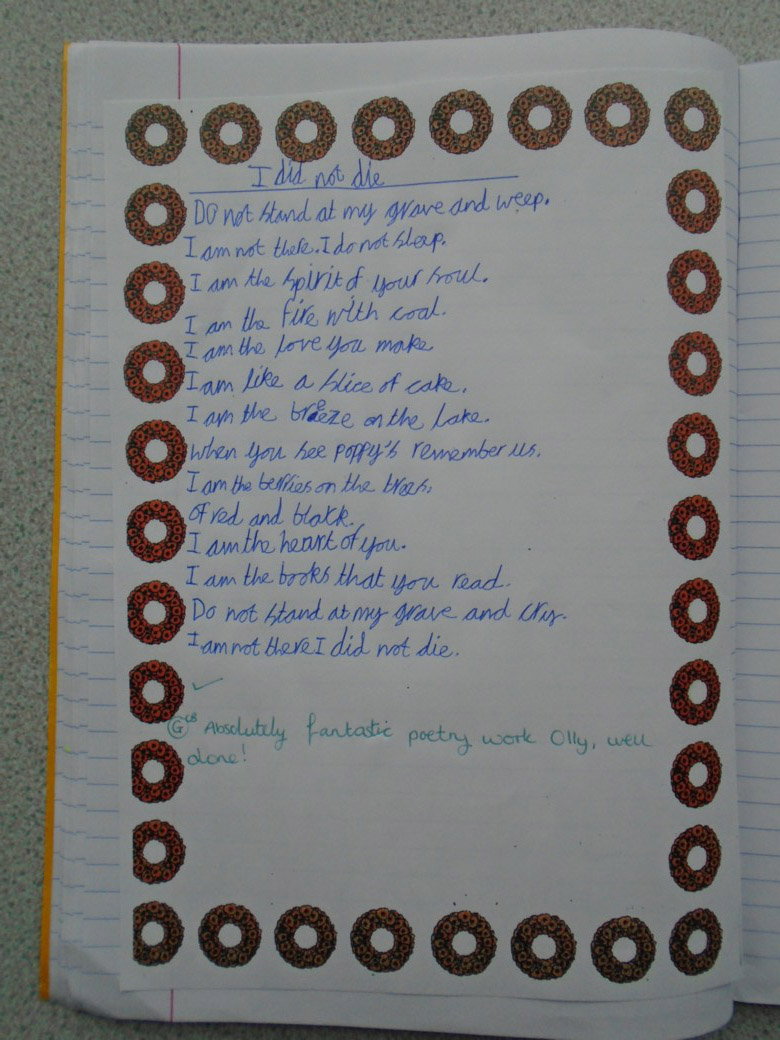 I did not die
Do not stand at my grave and weep.
I am not there. I do not sleep.
I am the spirit of your soul.
I am the fire with coal.
I am the love you make
I am like a slice of cake.
I am the breeze on the lake.
when you see poppy's remember us.
I am the berries on the trees,
of red and black.
I am the heart of you.
I am the books that you read.
Do not stand at my grave and cry.
I am not there I did not die.
G Absolutely fantastic poetry work Olly, well
done!